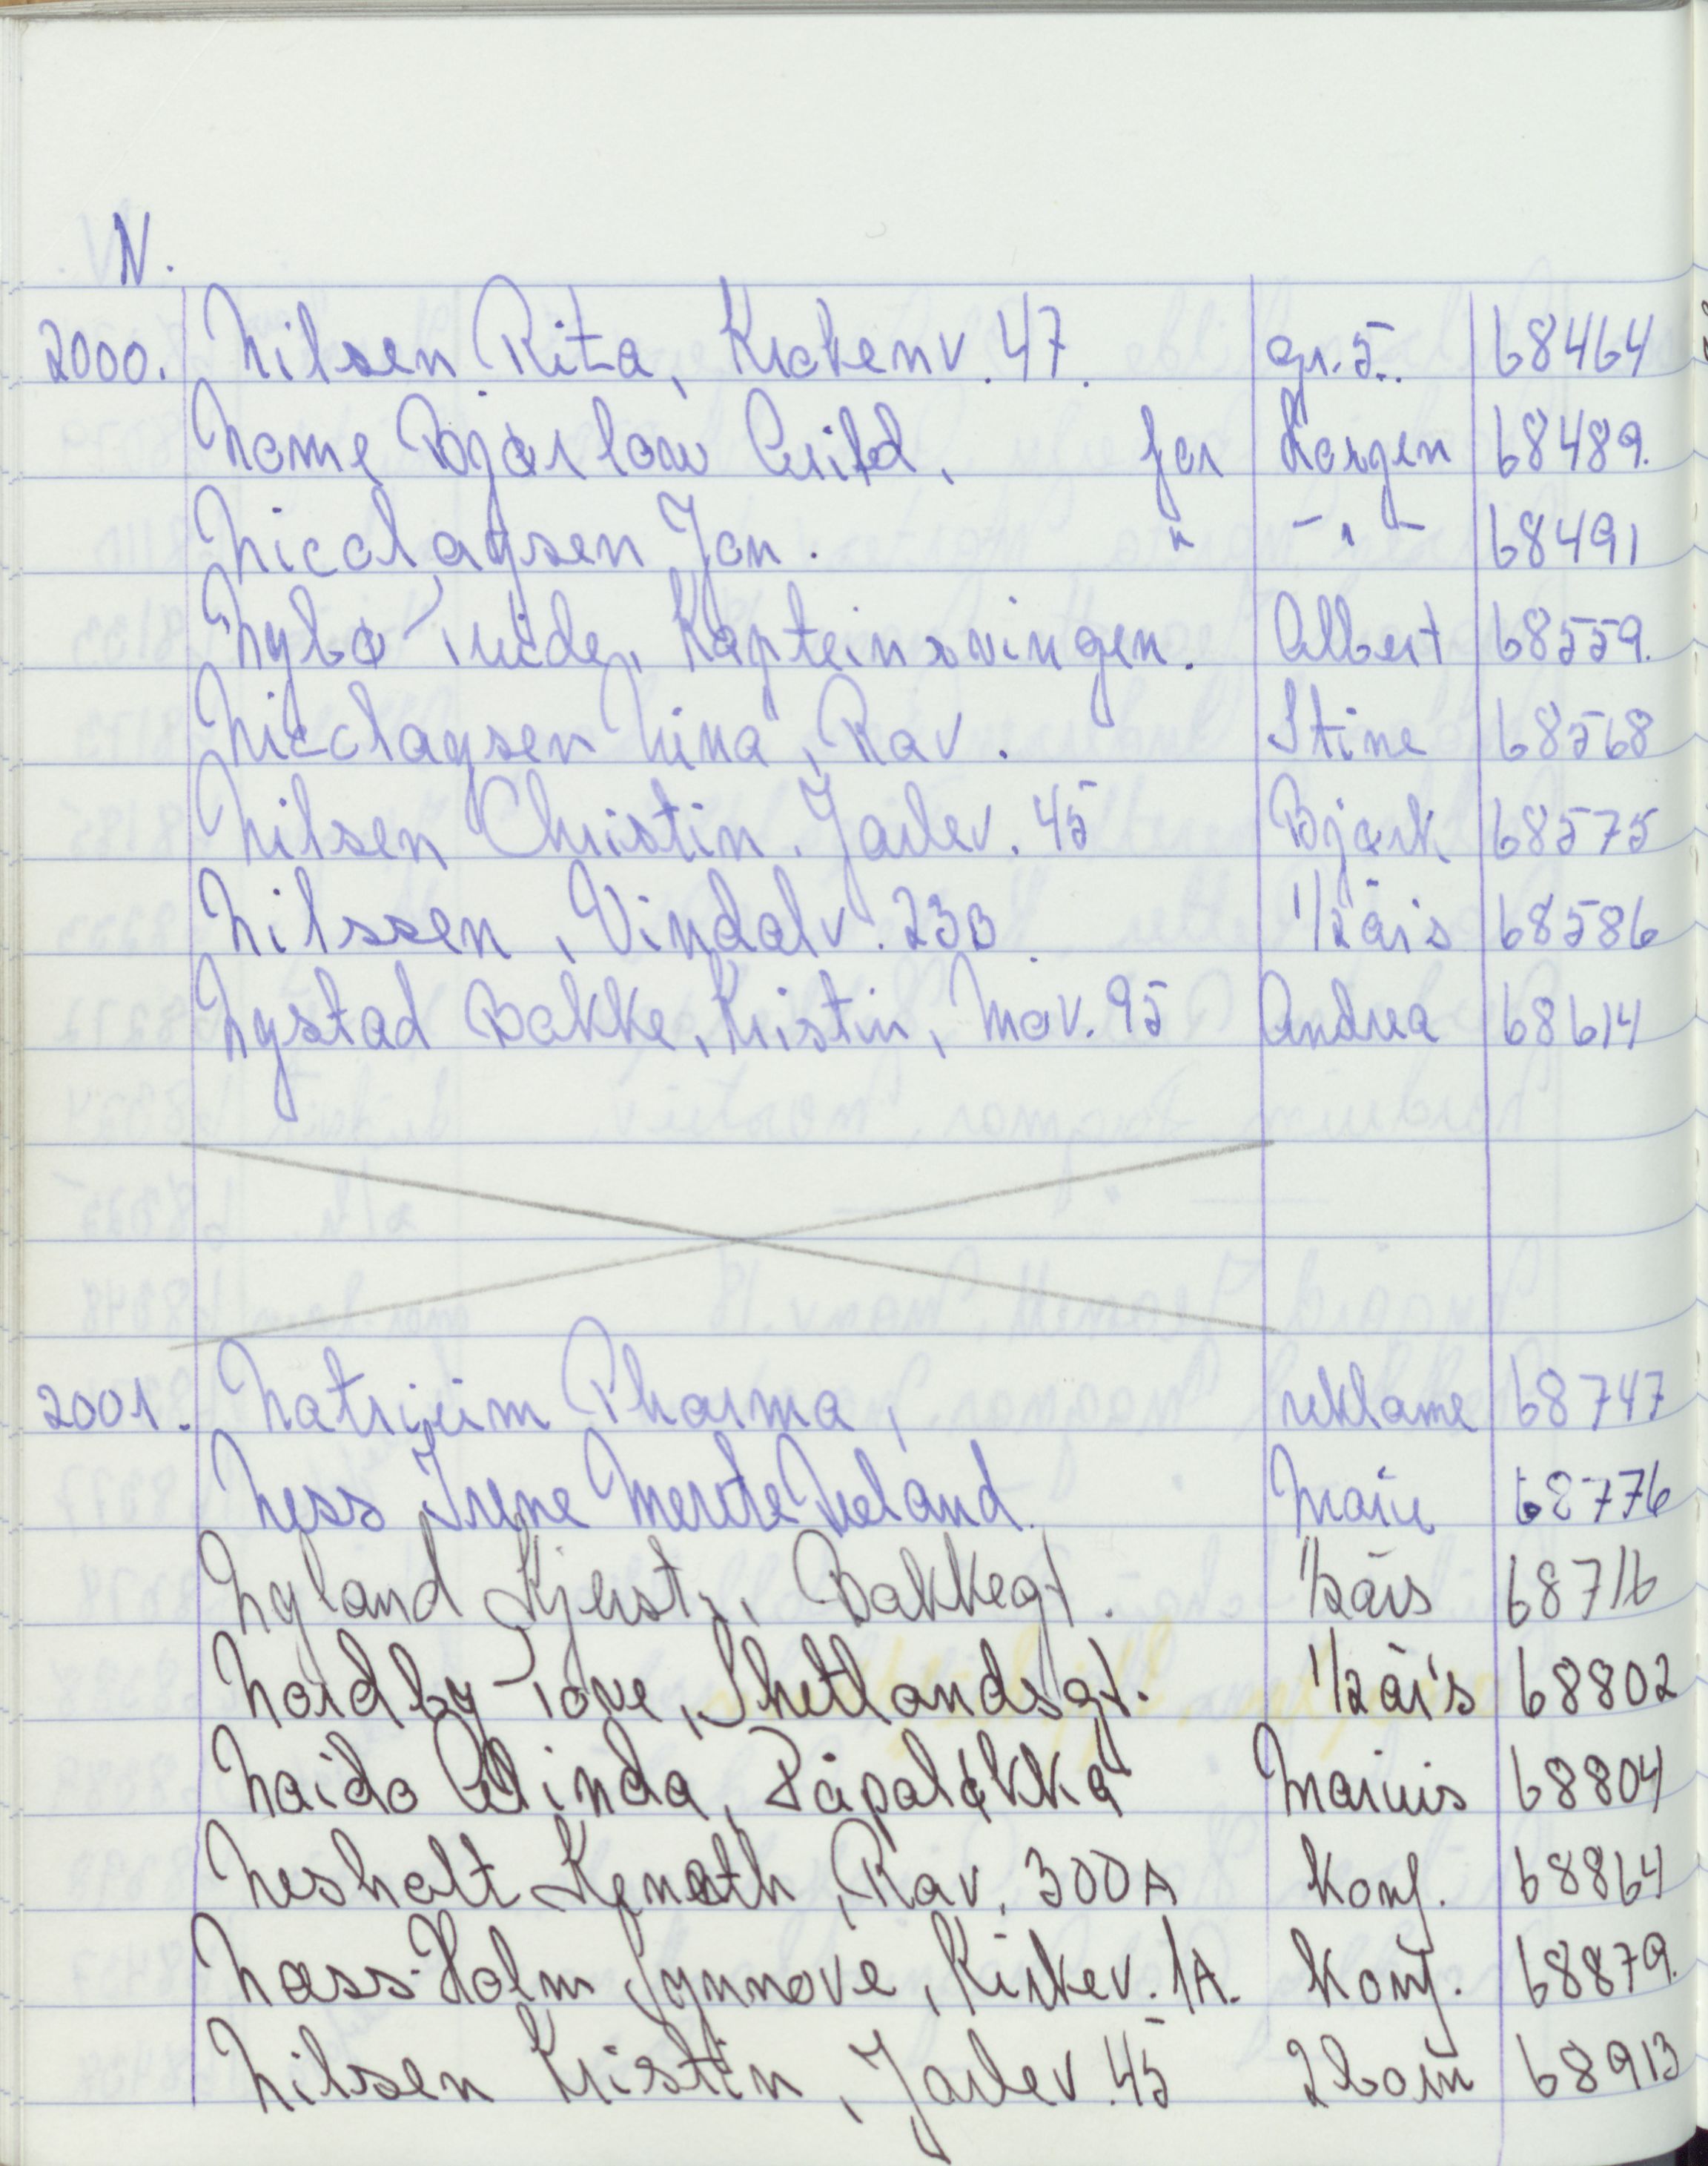 N.
2000. Nilsen Rita, Krokenv. 47. gr. 5. 68464
Nome Bjørlow Arild, for Korgen 68489.
Nicolaysen Jon. " - " - 68491
Nybø Turid, Kapteinsvingen. Albert 68559.
Nicolaysen Nina, Rav. Stine 68568
Nilsen Christin. Jarlev. 45 Bjørk 68575
Nilssen, Vindalv. 23B 1/2års 68586
Nystad Bakke, Kristin, Mov. 95 Andrea 68614
2001. Natrium Pharma, reklame 68747
Ness Irene Merete Meland. Marie 68776
Nyland Kjersti, Bakkegt. 1/2års 68716
Nordby Tove, Shetlandsgt. 1/2års 68802
Naido Linda, Marius 68804
Nesholt Kenoth, Rav. 300A Konf. 68864
Næss-Holm Synnøve, Kirkev. 1A. Konf. 68879.
Nilsen Kristin, Jarlev. 45 2 barn 68913